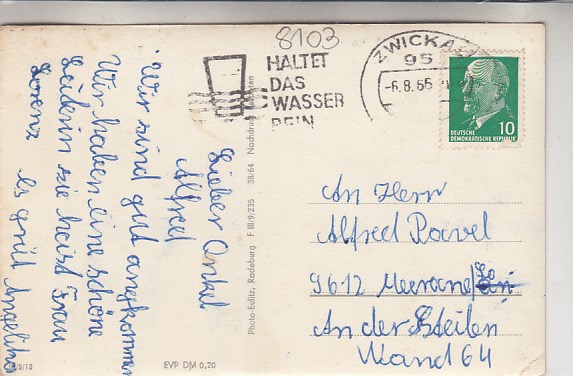 8103
HALTET
DAS
WASSER
REIN
ZWICKAU
95
-6.8.66
DEUTSCHE
DEMOKRATISCHE REPUBLIK
10
Lieber Onkel
Alfred
Wir sind gut angekommen
Wir haben eine schöne
Leiterin sie heist Frau
Lorenz
Es grüt Angelika
Photo-Eulitz, Radeburg F III/9/235 38/64
An Herrn
Alfred Pavel
9612 Meerane/
An der Steilen
Wand 64
EVP DM 0,20